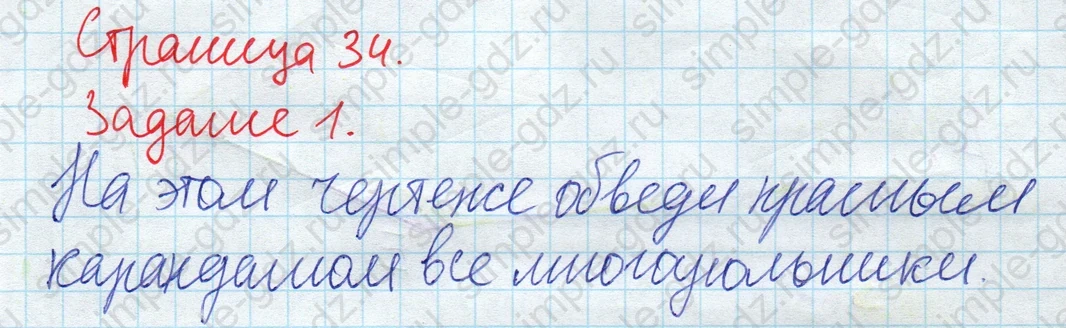 Страница 34.
Задание 1.
На этом чертеже обведи красным
карандашом все многоугольники.
simple-gdz.ru